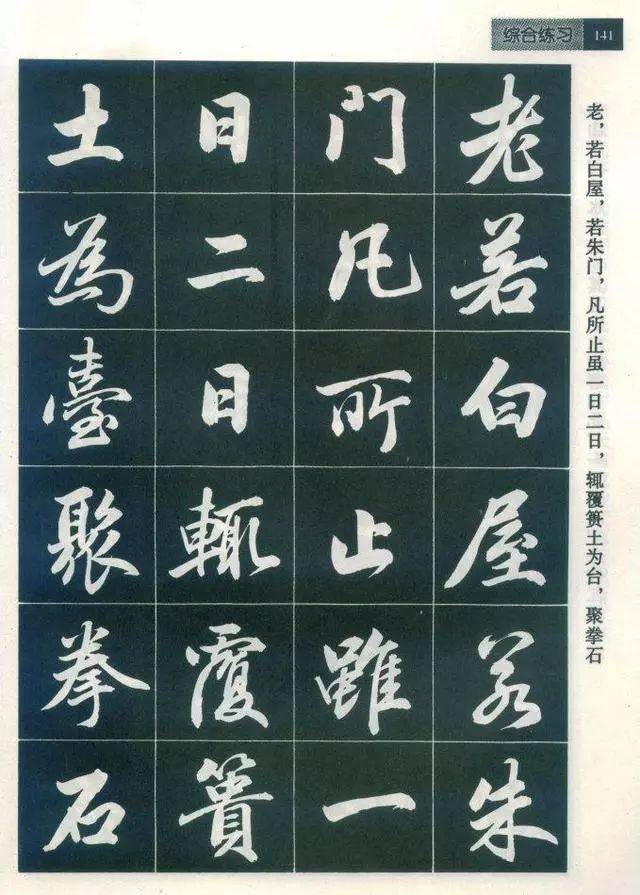 综合练习 141
老，若白屋，若朱门，凡所止虽一日二日，辄覆篑土为台，聚拳石
老若白屋若朱
门凡所止雖一
日二日輒覆簣
土為臺聚拳石